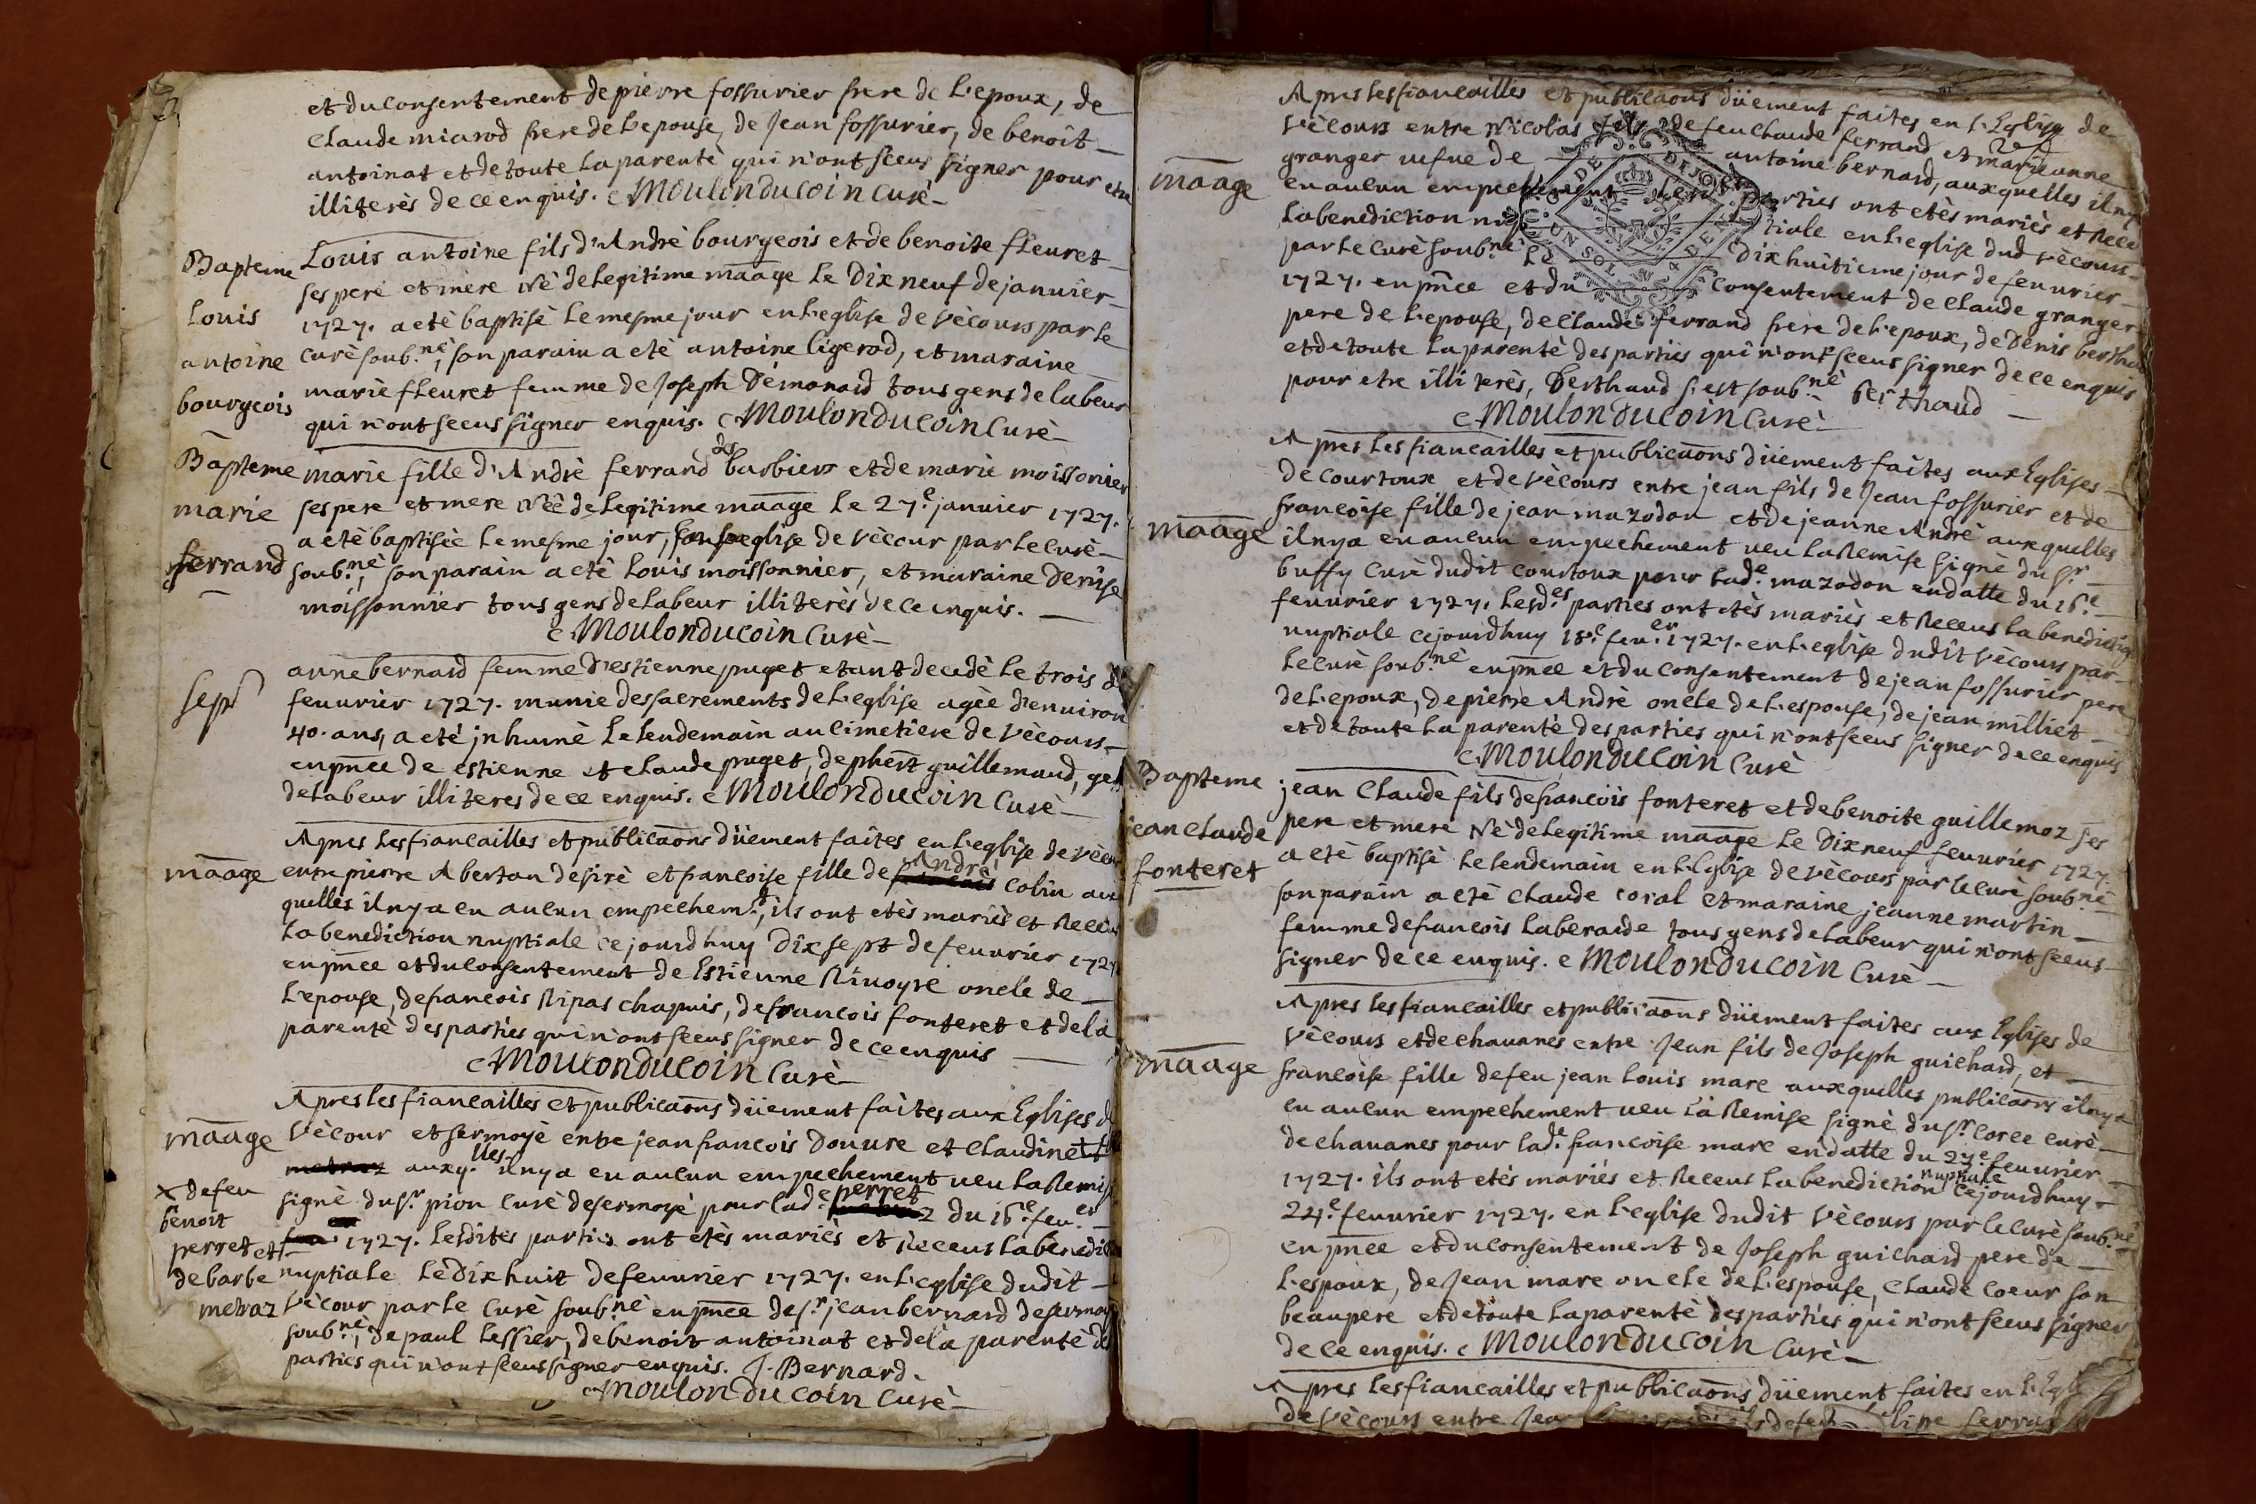 et du consentement de pierre fossurier frere de L'epoux, de
Claude miarod frere de L'epouse, de Jean fossurier, de benoît
antoinat et de toute La parentè qui n'ont sceus signer pour etre
illiterès de ce enquis. Moulonducoin Curè
Bapteme
Louis
antoine
bourgeois
Louis antoine fils d'Andrè bourgeois et de benoite fleuret
ses pere et mere Nè de Legitime maage Le Dix neuf de janvier
1727. a etè baptisè Le mesme jour en L'eglise de Vècours par Le
Curè soub.nè, son parain a etè antoine ligerod, et maraine
marie fleuret femme de Joseph Démonard tous gens de labeur
qui n'ont sceus signer enquis. Moulonducoin Curè
Bapteme
marie
ferrand
marie fille d'Andrè ferrand des barbiers et de marie moissonier
ses pere et mere Nèe de Legitime maage Le 27.e janvier 1727.
a etè baptisèe Le mesme jour, eglise de Vècour par Le Curè
soub.nè, son parain a etè Louis moissonnier, et maraine Denise
moissonnier tous gens de Labeur illiterès de ce enquis.
Moulonducoin Curè
sepr
anne bernard femme d'estienne puget etant decedè Le trois de
feuurier 1727. munie des sacrements de L'eglise agèe d'enuiron
40. ans, a eté jnhumè Le lendemain au Cimetiere de Vècours
en pnce de estienne et claude puget, de phert guillemaud, gens
de Labeur illiteres de ce enquis. Moulonducoin Curè
maage
Apres Les fiancailles et publicaons düement faites en L'eglise de Vècour
entre pierre Aberton desirè et francoise fille de Andrè Colin aux
quelles il ny a eu aucun empechem.t, ils ont etès mariès et Receus
La benediction nuptiale ce jourdhuy Dix sept de feuurier 1727
en pnce et du Consentement de Estienne Riuoyre oncle de
L'epouse, de francois Ripas chapuis, de francois fonteret et de la
parentè des parties qui n'ont sceus signer de ce enquis
Moulonducoin Curè
maage
Apres Les fiancailles et publicaons düement faites aux Eglises de
Vècour et sermoyè entre jean francois Douure et Claudine
auxq.lles il ny a eu aucun empechement veu La Remise
signè du s.r pion Curè de sermoyè pour lad.e perret du 16.e feu.er
1727. Lesdites parties ont etès mariès et Receus La benediction
nuptiale Le Dix huit de feuurier 1727. en L'eglise dudit
Vècour par Le Curè soub.nè en pnce de s.r jean bernard de sermoye
soub.nè, de paul Lessier, de benoit antoinat et de la parentè des
parties qui n'ont sceus signer enquis. J. Bernard.
Moulonducoin Curè
x de feu
benoit
perret et
de barbe
metraz
maage
Apres Les fiancailles et publicaons düement faites en L'Eglise de
Vècours entre Nicolas fils de feu Claude ferrand et marie anne
granger uefue de antoine bernard, auxquelles il ny a
eu aucun empechement Lesd. parties ont etès mariès et Receus
La benediction nuptiale en L'eglise dud Vècours
par Le Curè soub.nè Le Dix huitieme jour de feuurier
1727. en pnce et du Consentement de Claude granger
pere de L'epouse, de Claude ferrand frere de L'epoux, de Denis berthaud
et de toute La parentè des parties qui n'ont sceus signer de ce enquis
pour etre illiterès, Berthaud s'est soub.nè berthaud
Moulonducoin Curè
DE DIJON
UN SOL 4 DE
maage
Apres Les fiancailles et publicaons düement faites aux Eglises
de Courtoux et de Vècours entre jean fils de Jean fossurier et de
francoise fille de jean mazodon et de jeanne Andrè auxquelles
il ny a eu aucun empechement ueu La Remise signè du s.r
buffy Curè dudit Courtoux pour lad.e mazodon en datte du 16.e
feuurier 1727. Lesd.es parties ont etès mariès et Receus La benediction
nuptiale ce jourdhuy 18.e feu.er 1727. en L'eglise dudit Vècours par
Le Curè soub.nè en pnce et du Consentement de jean fossurier pere
de L'epoux, de pierre Andrè oncle de L'espouse, de jean milliet
et de toute La parentè des parties qui n'ont sceus signer de ce enquis
Moulonducoin Curè
Bapteme
jean claude
fonteret
jean Claude fils de francois fonteret et de benoite guillemoz ses
pere et mere Nè de Legitime maage Le Dix neuf feuurier 1727
a etè baptisè Le lendemain en L'Eglise de Vècours par Le Curè soub.nè
son parain a etè Claude coral et maraine jeanne martin
femme de francois Laberarde tous gens de Labeur qui n'ont sceus
signer de ce enquis. Moulonducoin Curè
maage
Apres Les fiancailles et publicaons düement faites aux Eglises de
Vècours et de chauanes entre Jean fils de Joseph guichard, et
francoise fille de feu jean Louis marc auxquelles publicaons il ny a
eu aucun empechement ueu La Remise signè du s.r Coree Curè
de chauanes pour lad.e francoise marc en datte du 24.e feuurier
1727. ils ont etès mariès et Receus La benediction nuptiale ce jourdhuy
24.e feuurier 1727. en L'eglise dudit Vècours par le Curè soub.nè
en pnce et du Consentement de Joseph guichard pere de
L'espoux, de Jean marc oncle de L'espouse, Claude Coeur son
beaupere et de toute La parentè des parties qui n'ont sceus signer
de ce enquis. Moulonducoin Curè
Apres Les fiancailles et publicaons düement faites en L'Egl
de Vècours entre Jean